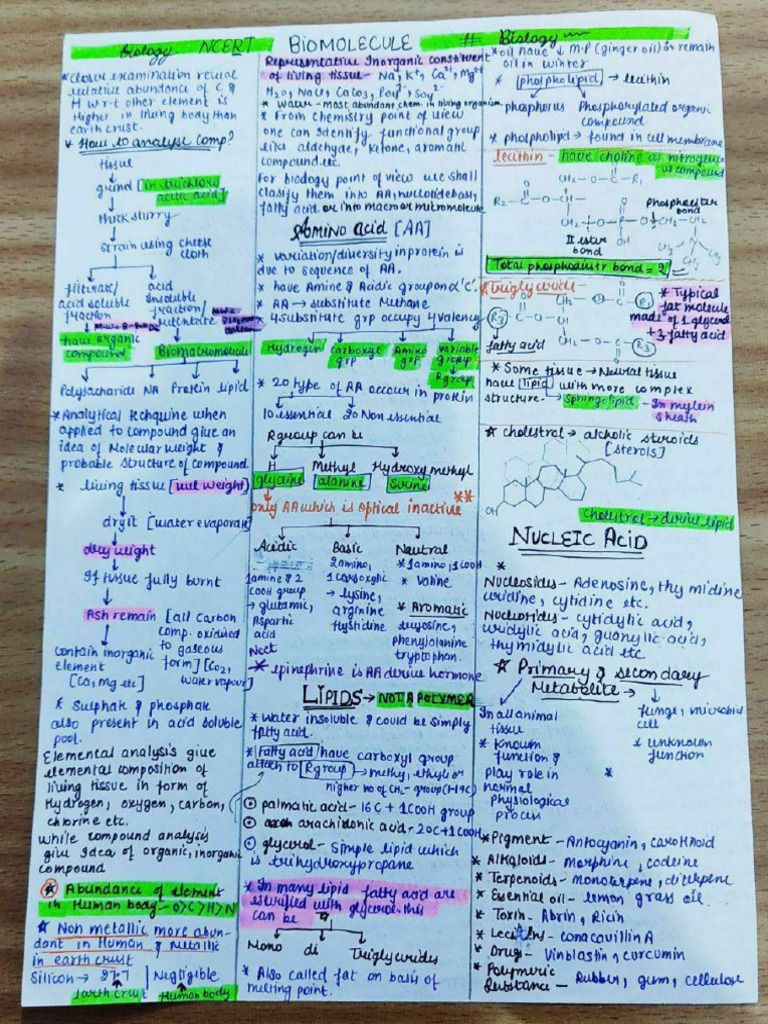 Biology NCERT BIOMOLECULE # Biology
* closer examination reveal
relative abundance of C &
H w.r.t other element is
Higher in living body than
earth crust.
* How to analyse comp?
tissue
grind [in trichloro
acetic acid]
thick slurry
strain using cheese
cloth
filtrate/
acid soluble
fraction
acid
insoluble
fraction/
retentate
have organic
compound
Biomacromolecule
Polysacharide NA Protein lipid
* Analytical techquine when
applied to compound give an
idea of Molecular weight &
probable structure of compound.
* living tissue [wet weight]
dry it [water evaporate]
dry weight
If tissue fully burnt
Ash remain [all carbon
comp. oxidised
to gaseous
form] [CO2,
water vapour]
contain inorganic
element
[Ca, Mg etc]
* Sulphate & phosphate
also present in acid soluble
pool.
Elemental analysis give
elemental composition of
living tissue in form of
Hydrogen, oxygen, carbon,
chlorine etc.
while compound analysis
give Idea of organic, inorganic
compound
* Abundance of element
in Human body:- O>C>H>N
* Non metallic more abun-
dant in Human & Metallic
in earth crust
Silicon → 27.7 | Negligible
Earth crust Human body
Representative Inorganic constituent
of living tissue - Na+, K+, Ca2+, Mg2+
H2O, NaCl, CaCO3, PO43-, SO42-
* water - most abundant chem. in living organism.
* From chemistry point of view
one can identify functional group
like aldehyde, Ketone, aromatic
compound etc.
For biology point of view we shall
classify them into AA, nucleotide base,
fatty acid or into macro or micromolecule
Amino acid [AA]
* variation/diversity in protein is
due to sequence of AA.
* have Amine & Acidic group on α'C'.
* AA → substitute Methane
* 4 substitute grp occupy 4 valency
Hydrogen carboxyl
grp Amino
grp variable
group
R group
* 20 type of AA occur in protein
10 essential 20 Non essential
R group can be
H Methyl Hydroxy methyl
glycine alanine Serine
only AA which is optical inactive **
Acidic Basic Neutral
1 amine & 2
COOH group
→ glutamic,
Aspartic
acid
2 amino,
1 carboxylic
→ lysine,
arginine
Hystidine
* 1 amino, 1 COOH
* valine
* Aromatic
tyrosine,
phenylalanine
tryptophan.
* epinephrine is AA derive hormone
LIPIDS → NOT A POLYMER
* Water insoluble & could be simply
fatty acid.
* Fatty acid have carboxyl group
attach to R group → methyl, ethyl or
higher no of CH2- group (1-19C)
palmatic acid - 16C + 1COOH group
arachidonic acid - 20C + 1COOH
glycerol - simple lipid which
is trihydroxypropane
* In many lipid fatty acid are
esterified with glycerol. this
can be
Mono di Triglycerides
* Also called fat on basis of
melting point.
* oil have ↓ M.P (ginger oil) & remain
oil in winter
* phospholipid → lecithin
phosphorus Phosphorylated organic
compound.
* phospholipid → found in cell membrane
lecithin - have choline as nitrogenous
compound
phosphoester
bond
II ester
bond
Total phosphodiestr bond = 2
* Triglyceride
fatty acid
* Typical
fat molecule
made of 1 glycerol
+ 3 fatty acid
* Some tissue → Neural tissue
have lipid with more complex
structure. → Sphingolipid - In mylein
sheath
* cholestrol → alcholic steroids
[sterols]
OH
cholestrol → derive lipid
NUCLEIC ACID
*
Nucleosides - Adenosine, thymidine
uridine, cytidine etc.
Nucleotides - cytidylic acid,
uridylic acid, guanylic acid,
thymidylic acid etc
* Primary & secondary
Metabolite →
In all animal
tissue
* Known
function &
play role in
normal
physiological
process
fungi, microbial
cell
* unknown
function
* Pigment - Antocyanin, carotinoid
* Alkaloids - morphine, codeine
* Terpenoids - monoterpene, diterpene
* Essential oil - lemon grass oil.
* Toxin - Abrin, Ricin
* Lectins - conacavillin A
* Drug - Vinblastin, curcumin
* Polymeric
Substance - Rubber, gum, cellulose